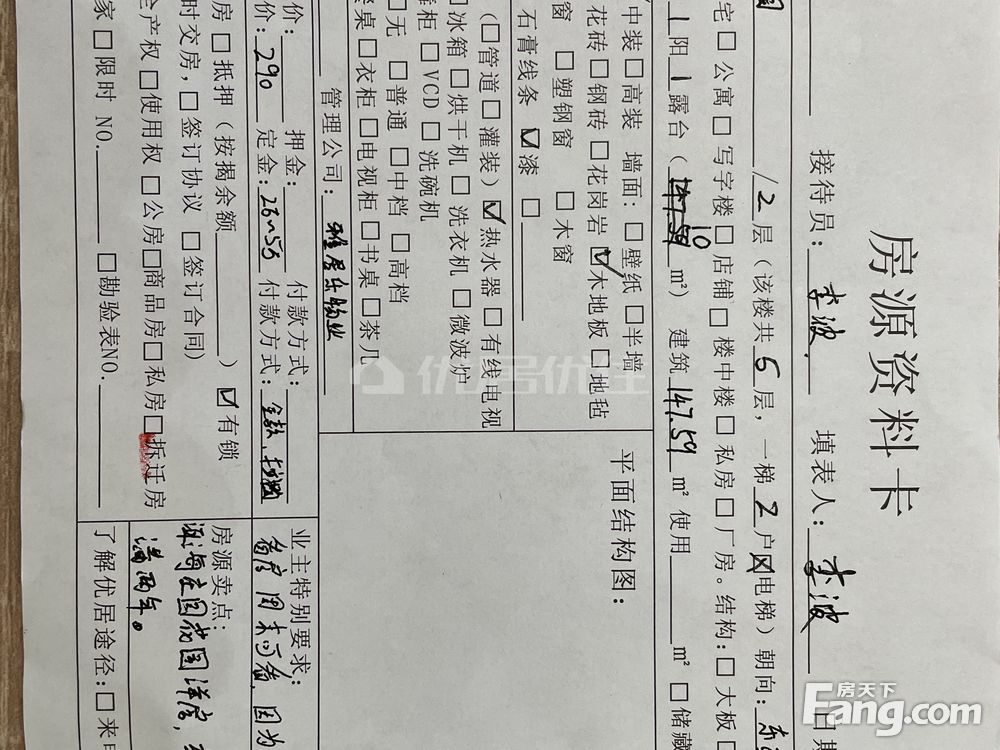 房源资料卡
接待员：李波 填表人：李波 日期
园 12层（该楼共5层，一梯2户 电梯）朝向：东
宅□公寓□写字楼□店铺□楼中楼□私房□厂房。结构：□大板□
1阳1露台（ 10 m²）建筑147.59m²使用 m²□储藏
中装□高装 墙面：□壁纸□半墙
花砖□钢砖□花岗岩☑木地板□地毡
窗 □塑钢窗 □木窗
石膏线条☑漆□
平面结构图：
（□管道□灌装）☑热水器□有线电视
□冰箱□烘干机□洗衣机□微波炉
柜□VCD□洗碗机
□无 □普通 □中档 □高档
桌□衣柜□电视柜□书桌□茶几
管理公司：雅居乐物业
价： 押金： 付款方式：
价：290 定金： 付款方式：全款、按揭
业主特别要求：
看房周末可看，因为
房□抵押（按揭余额 ）☑有锁
时交房，□签订协议 □签订合同）
产权□使用权□公房□商品房□私房□拆迁房
家□限时 NO. □勘验表NO.
房源卖点：
满两年。
了解优居途径：□来电
优居优住
房天下
Fang.com